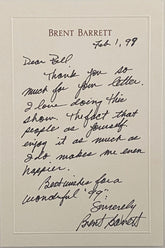 BRENT BARRETT
Feb 1, 99
Dear Bill
Thank you so
much for your letter.
I love doing this
show. The fact that
people as yourself
enjoy it as much as
I do makes me even
happier.
Best wishes for a
wonderful '99.
Sincerely
Brent Barrett